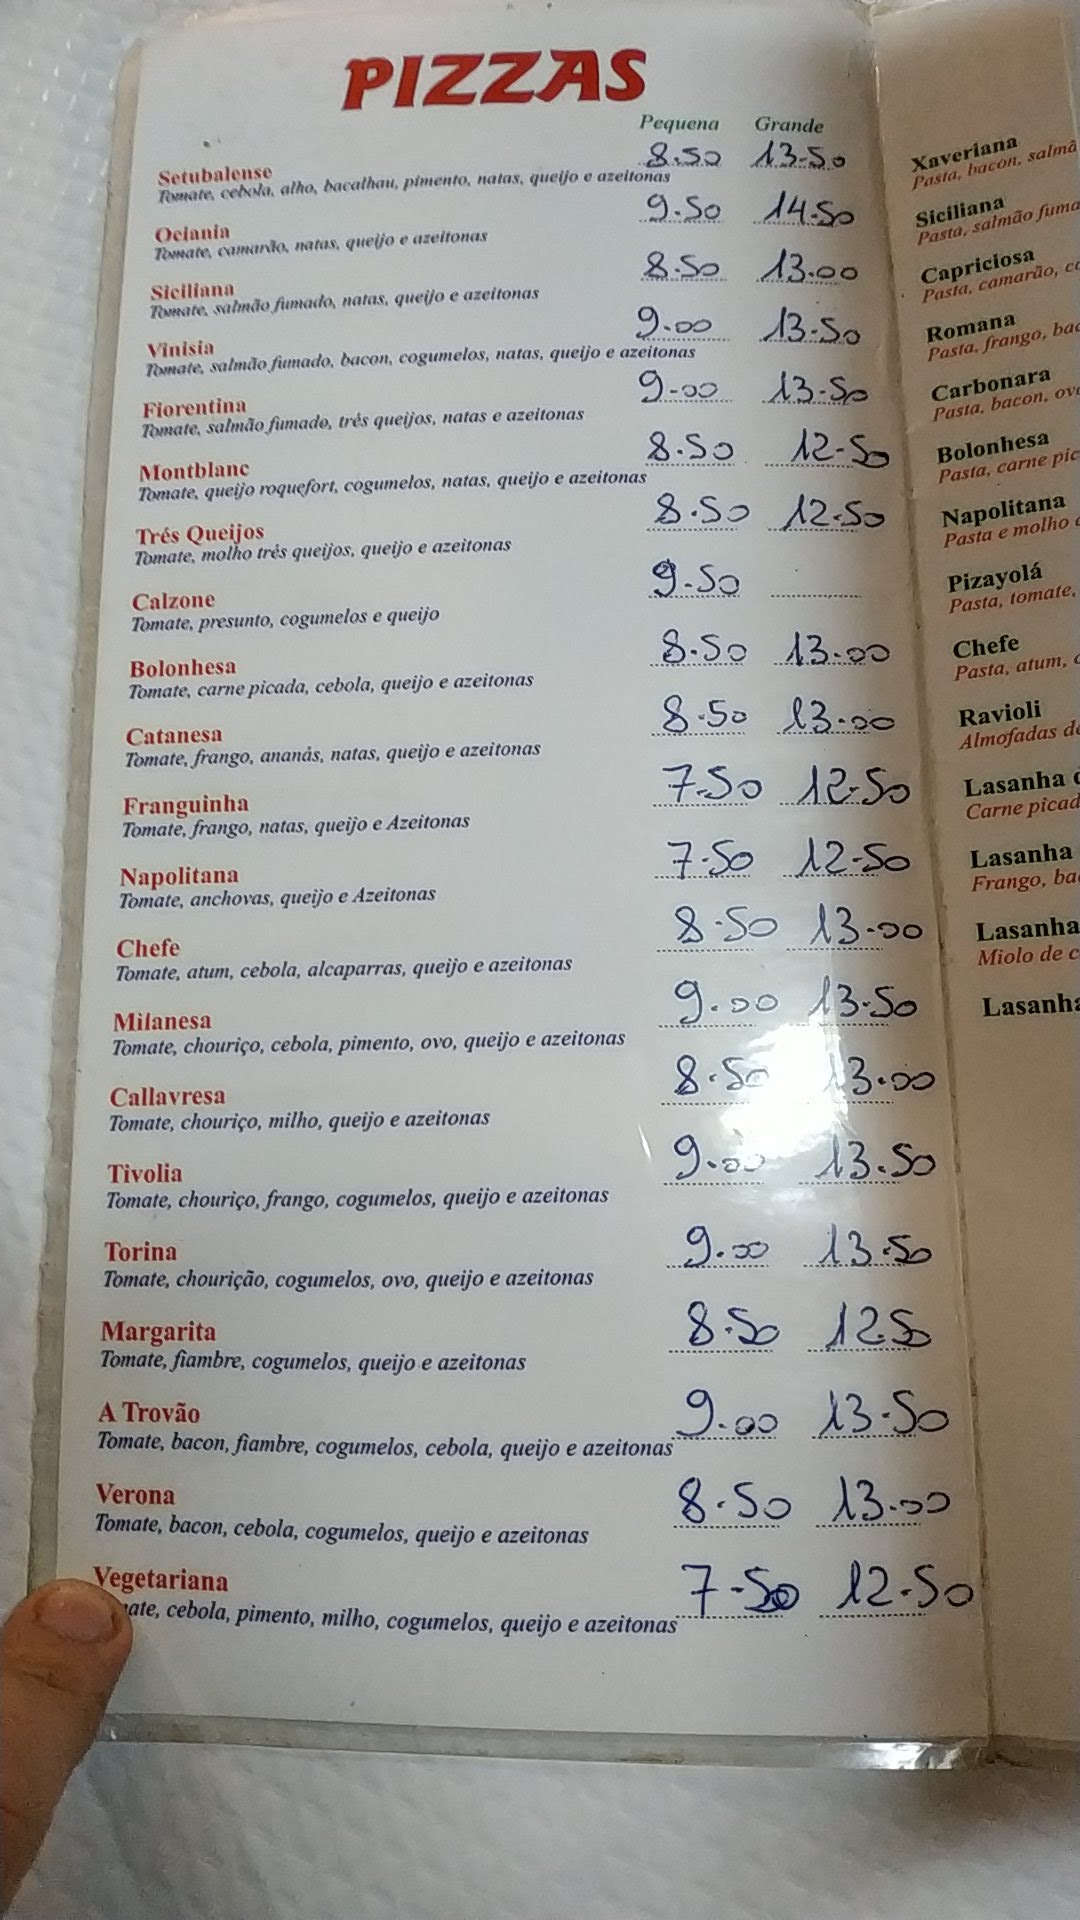 PIZZAS
Pequena Grande
Setubalense 8.50 13.50
Tomate, cebola, alho, bacalhau, pimento, natas, queijo e azeitonas
Ociania 9.50 14.50
Tomate, camarão, natas, queijo e azeitonas
Siciliana 8.50 13.00
Tomate, salmão fumado, natas, queijo e azeitonas
Vinisia 9.00 13.50
Tomate, salmão fumado, bacon, cogumelos, natas, queijo e azeitonas
Fiorentina 9.00 13.50
Tomate, salmão fumado, três queijos, natas e azeitonas
Montblanc 8.50 12.50
Tomate, queijo roquefort, cogumelos, natas, queijo e azeitonas
Trés Queijos 8.50 12.50
Tomate, molho trés queijos, queijo e azeitonas
Calzone 9.50
Tomate, presunto, cogumelos e queijo
Bolonhesa 8.50 13.00
Tomate, carne picada, cebola, queijo e azeitonas
Catanesa 8.50 13.00
Tomate, frango, ananás, natas, queijo e azeitonas
Franguinha 7.50 12.50
Tomate, frango, natas, queijo e Azeitonas
Napolitana 7.50 12.50
Tomate, anchovas, queijo e Azeitonas
Chefe 8.50 13.00
Tomate, atum, cebola, alcaparras, queijo e azeitonas
Milanesa 9.00 13.50
Tomate, chouriço, cebola, pimento, ovo, queijo e azeitonas
Callavresa 8.50 13.00
Tomate, chouriço, milho, queijo e azeitonas
Tivolia 9.00 13.50
Tomate, chouriço, frango, cogumelos, queijo e azeitonas
Torina 9.00 13.50
Tomate, chourição, cogumelos, ovo, queijo e azeitonas
Margarita 8.50 12.50
Tomate, fiambre, cogumelos, queijo e azeitonas
A Trovão 9.00 13.50
Tomate, bacon, fiambre, cogumelos, cebola, queijo e azeitonas
Verona 8.50 13.00
Tomate, bacon, cebola, cogumelos, queijo e azeitonas
Vegetariana 7.50 12.50
cebola, pimento, milho, cogumelos, queijo e azeitonas
Xaveriana
Pasta, bacon,
Siciliana
Pasta, salmão
Capriciosa
Pasta, camarão,
Romana
Pasta, frango,
Carbonara
Pasta, bacon,
Bolonhesa
Pasta, carne
Napolitana
Pasta e molho
Pizayolá
Pasta, tomate,
Chefe
Pasta, atum,
Ravioli
Almofadas
Lasanha
Carne
Lasanha
Frango,
Lasanha
Miolo de
Lasanha